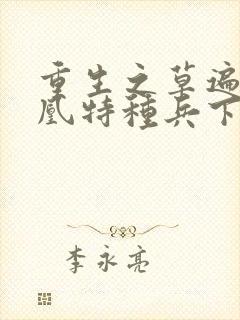 重生之草遍
凰特種兵下
李永亮